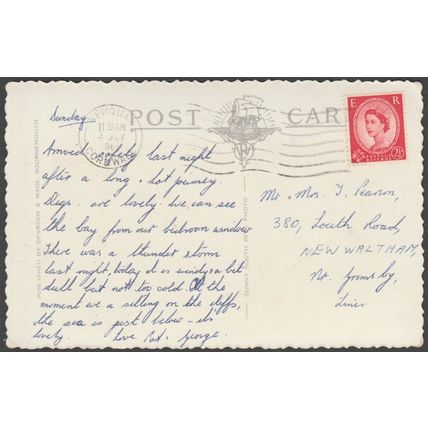 Sunday
NEWQUAY
CORNWALL
POST CARD
E R
POSTAGE REVENUE
2½D
Arrived safely last night
after a long, hot journey.
Digs are lovely. We can see
the bay from our bedroom window.
There was a thunder storm
last night, today it is windy & a bit
dull but not too cold. At the
moment we a sitting on the cliffs,
the sea is just below - its
lovely. Love Pat & George.
PUBLISHED BY DEARDEN & WADE, BOURNEMOUTH
SUNNY SOUTH REAL PHOTO
Mr. & Mrs. J. Pearson,
380, South Road,
NEW WALTHAM,
Nr. Grimsby,
Lincs.